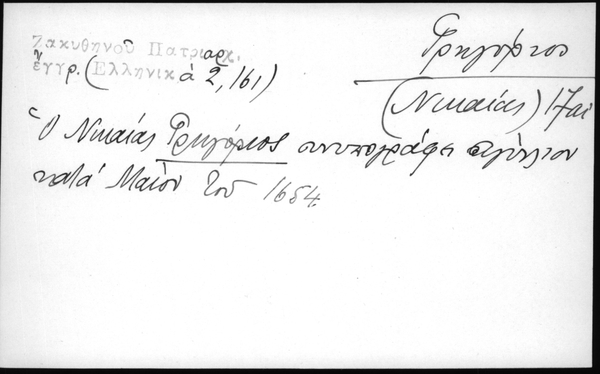 Ζακυθηνοῦ Πατριαρχ.
ἔγγρ. (Ἑλληνικὰ 2, 161)
Γρηγόριος
(Νικαίας) 17αι
Ὁ Νικαίας Γρηγόριος συνυπογράφει σιγίλλιον
κατὰ Μάϊον τοῦ 1654.